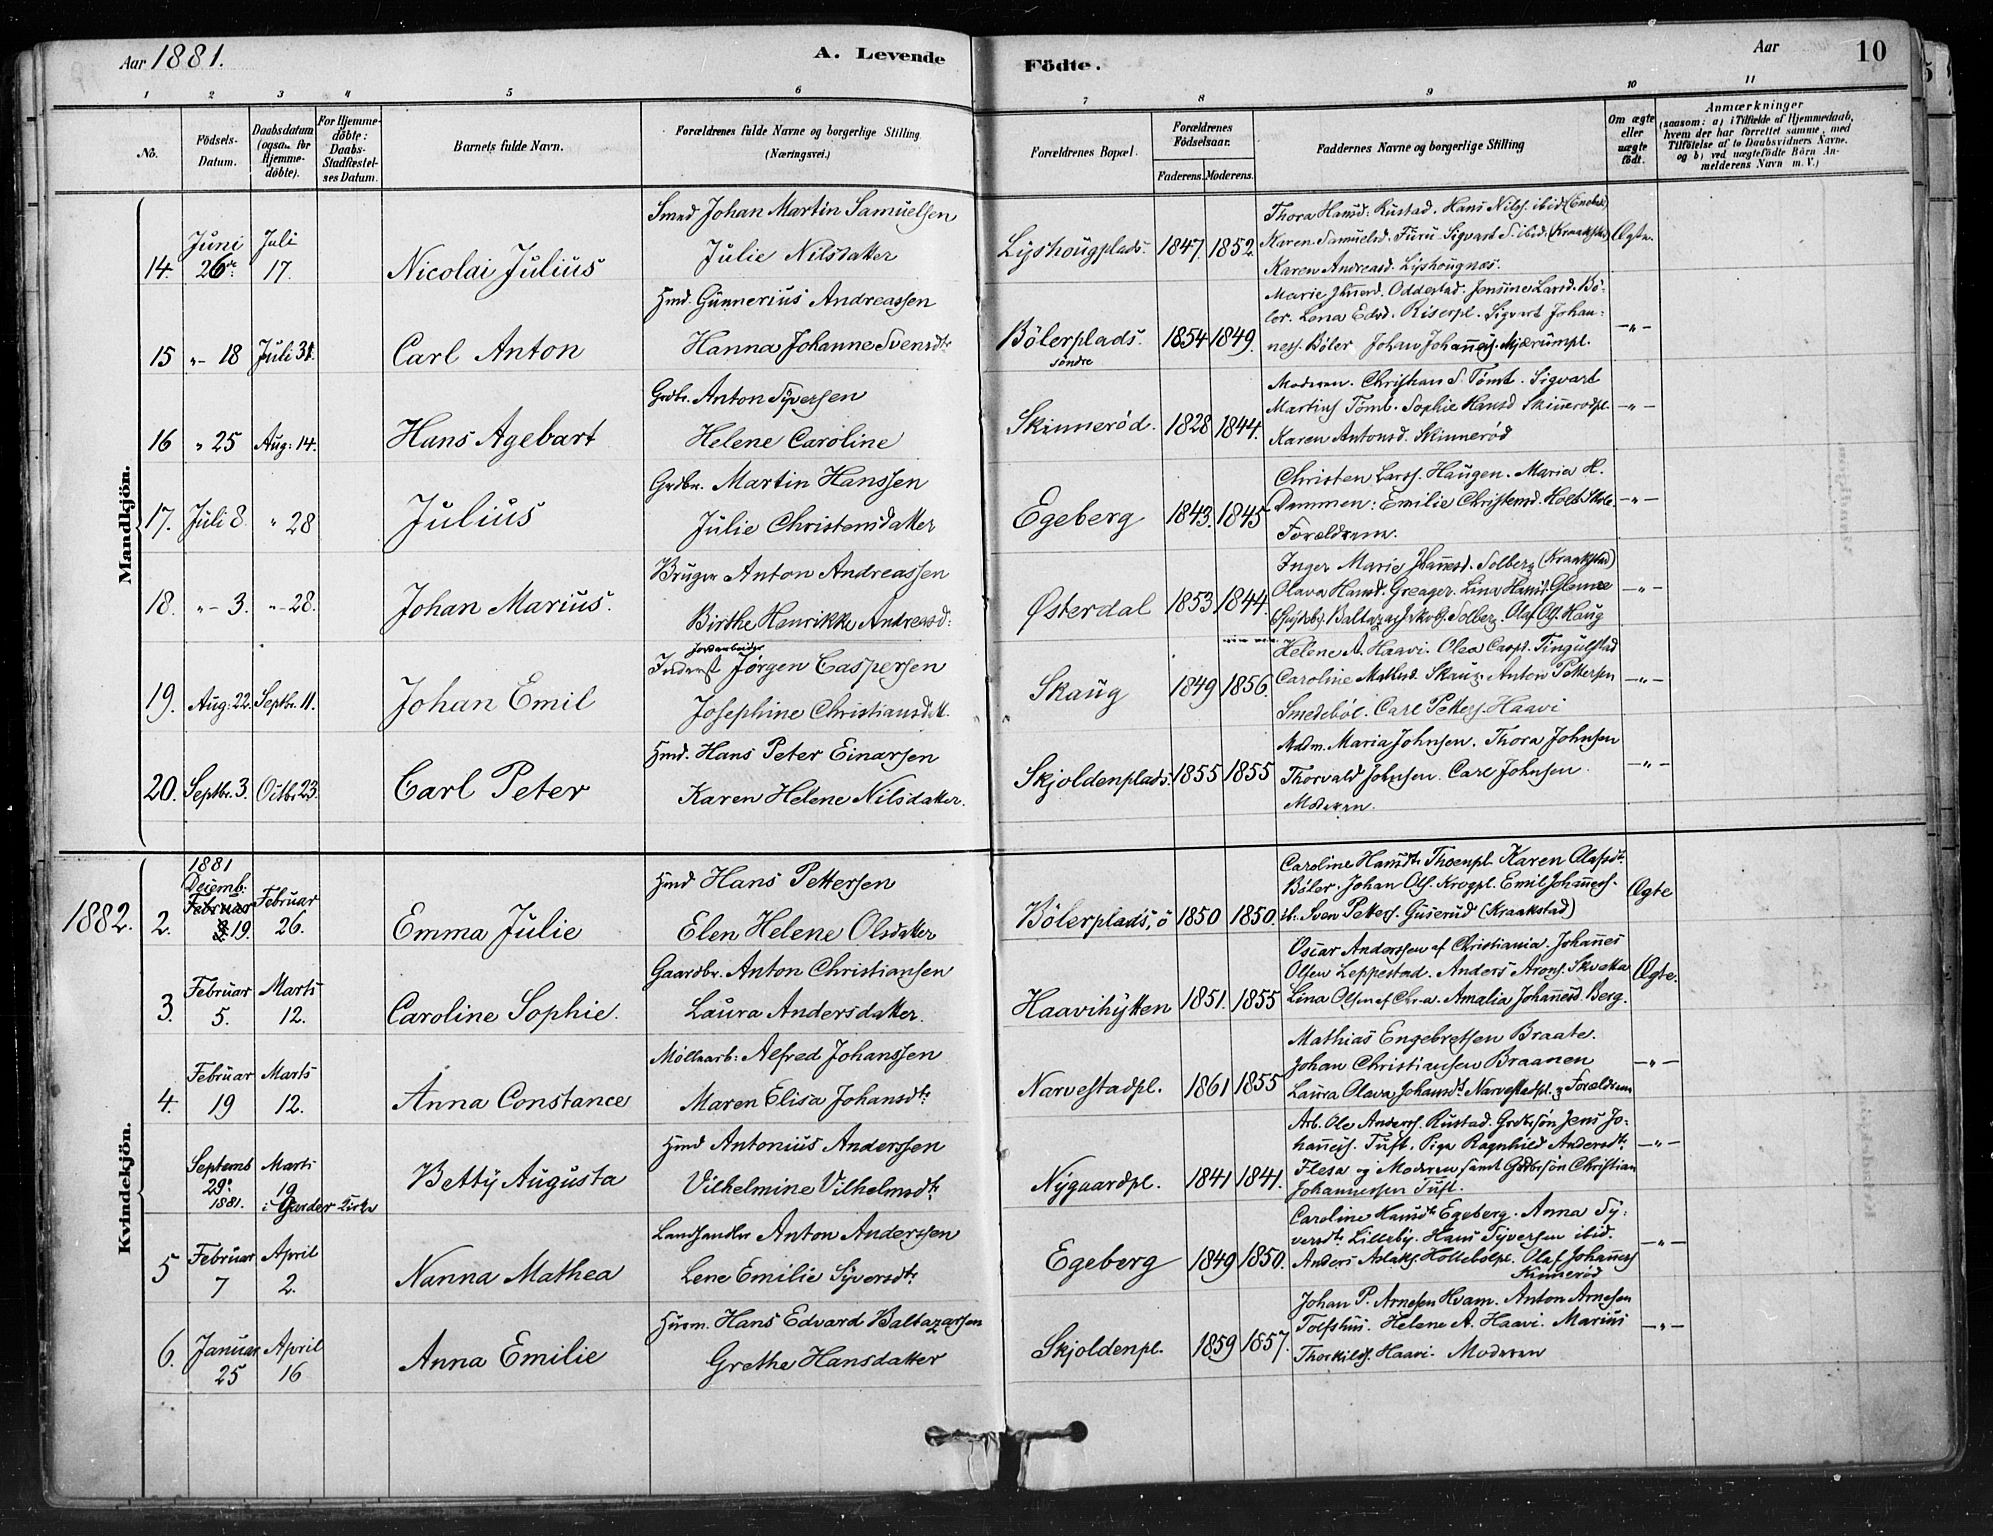 Aar 1881.
A. Levende
Födte.
Aar
10
1 2 3 4 5 6 7 8 9 10 11
No.
Födsels-
Datum.
Daabsdatum
(ogsaa for
Hjemme-
döbte).
For Hjemme-
döbte:
Daabs-
Stadfestel-
ses Datum.
Barnets fulde Navn.
Forældrenes fulde Navne og borgerlige Stilling
(Næringsvei.)
Forældrenes Bopæl.
Forældrenes
Födselsaar.
Faderens. Moderens.
Faddernes Navne og borgerlige Stilling
Om ægte
eller
uægte
födt.
Anmærkninger
(saasom: a) i Tilfælde af Hjemmedaab,
hvem der har forrettet samme, med
Tilföielse af to Daabsvidners Navne.
og b) ved uægtefödte Börn An-
melderens Navn m. V.)
Mandkjön.
14. Juni 26de Juli 17. Nicolai Julius
Smed Johan Martin Samuelsen
Julie Nilsdatter
Lyshougplads. 1847. 1852.
Thora Hansd: Rustad. Hans Nilss. ibid (Enebak)
Karen Samuelsd. Furu. Sigvart S. ibid. (Kraakstad)
Karen Andreasd. Lyshougnæs.
Ægte.
15 "- 18 Juli 31. Carl Anton
Hmd. Gunnerius Andreassen
Hanna Johanne Svensdtr
Bölerplads. söndre 1854 1849.
Marie Ihnerd. Oddestad. Jensine Larsd. Bö-
ler. Lena Edvd. Riserpl. Sigvart Johan-
ness. Böler Johan Johanness. Mjærumpl.
-"-
16 " 25 Aug: 14. Hans Agebart
Grdbr. Anton Syversen
Helene Caroline
Skinneröd. 1828 1844.
Moderen. Christian S. Tömt. Sigvart
Martins Tömt. Sophie Hansd Skinnerödpl.
Karen Antonsd. Skinneröd
-"-
17. Juli 8. " 28 Julius
Grdbr. Martin Hanssen
Julie Christensdatter
Egeberg 1843. 1845.
Christen Larss. Haugen. Maria H.
Dammen: Emilie Christensd. Holt Skole.
Forældrene.
-"-
18. "- 3. "- 28. Johan Marius.
Bruger Anton Andreassen
Birthe Henrikke Andreasd:
Østerdal 1853 1844.
Inger Marie Johannesd. Solberg (Kraakstad)
Olava Hansd. Greager. Lina Hansd. Glenne
Baltazar Jakobs. Solberg. Olaf Ols. Haug
-"-
19. Aug: 22. Septbr. 11. Johan Emil
Jordarbeider
Inderst Jørgen Caspersen
Josephine Christiansdatt.
Skaug 1849 1856.
Helene A. Haavi. Olea Caspd. Tingulstad
Caroline Mathisd. Skaug. Anton Pettersen
Smedeböl. Carl Petters. Haavi
-"-
20. Septbr. 3. Octbr. 23. Carl Peter
Hmd. Hans Peter Einarsen
Karen Helene Nilsdatter.
Skjoldenplads. 1855 1855
Madm. Maria Johnsen. Thora Johnsen
Thorvald Johnsen. Carl Johnsen.
Moderen.
-"-
1882.
Kvindekjön.
2. 1881 Decemb. Februar 19. Februar 26. Emma Julie
Hmd Hans Pettersen
Elen Helene Olsdatter
Bölerplads, ö 1850 1850.
Caroline Hansdtr Thoenpl. Karen Olafsdtr
Böler. Johan Ols. Krogpl. Emil Johanness.
ib. Sven Petters. Guserud (Kraakstad)
Ægte
3. Februar 5. Marts 12. Caroline Sophie.
Gaardbr. Anton Christiansen
Laura Andersdatter.
Haavihytten 1851. 1855
Oscar Anderssen af Christiania. Johannes
Olsen Leppestad. Anders Arons. Skvatta
Lina Olsen af Chr.a. Amalia Johannesd. Berg.
Ægte.
4. Februar 19 Marts 12. Anna Constance
Möllearb: Alfred Johanssen
Maren Elisa Johansdtr
Narvestadpl. 1861 1855
Mathias Engebretsen Braate.
Johan Christiansen Braanen
Laura Olava Johansdtr Narvestadpl. Forældrene
-"-
Septemb 29de 1881. Marts 19 i Garder Kirke Betty Augusta
Hmd Antonius Anderssen
Vilhelmine Vilhelmsdtr
Nygaardpl. 1841 1841.
Arb. Ole Anderss. Rustad. Grdbrsön Jens Jo-
hanness. Tuft. Pige Ragnhild Andersdtr
Flesa og Moderen samt Gdbrsön Christian
Johannessen Tuft.
-"-
5 Februar 7 April 2. Nanna Mathea
Landhandler Anton Anderssen
Lene Emilie Syversdtr
Egeberg 1849 1850.
Caroline Hansdtr Egeberg. Anna Sy-
versdtr Lilleby. Hans Syversen ibid.
Anders Aslaks. Hollebölpl. Olaf Johanness
Kinneröd
-"-
6. Januar 25 April 16 Anna Emilie
Husm. Hans Edvard Baltazarsen
Grethe Hansdatter
Skjoldenpl. 1859 1857.
Johan P. Arnesen Hvam. Anton Arnesen
Tolfshus. Helene A. Haavi. Marius
Thorkilds. Haavi. Moderen
-"-